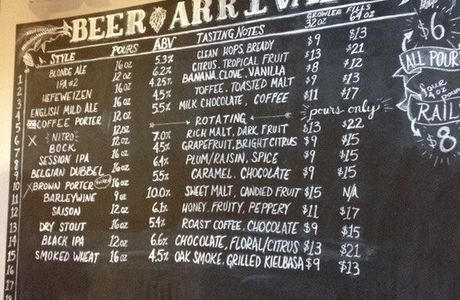 BEER ARRIVA
STYLE POURS ABV TASTING NOTES GROWLER FILLS 32oz 64oz
1 BLONDE ALE 16oz 5.3% CLEAN HOPS, BREADY $9 $13
2 IPA #2 16oz 6.2% CITRUS, TROPICAL FRUIT $13 $21
3 HEFEWEIZEN 16oz 4.25% BANANA, CLOVE, VANILLA $8 $12
4 ENGLISH MILD ALE 16oz TOFFEE, TOASTED MALT $9 $15
5 COFFEE PORTER 12oz 5.5% MILK CHOCOLATE, COFFEE $11 $17
6 X NITRO ROTATING pours only
7 BOCK 12oz 7.0% RICH MALT, DARK FRUIT $13 $22
8 SESSION IPA 16oz 4.5% GRAPEFRUIT, BRIGHT CITRUS $9 $15
9 BELGIAN DUBBEL 12oz 6.4% PLUM/RAISIN, SPICE $9 $15
10 X BROWN PORTER 16oz 5.5% CARAMEL, CHOCOLATE $9 $15
11 BARLEYWINE 9oz 10.0% SWEET MALT, CANDIED FRUIT $15 N/A
12 SAISON 12oz 6.1% HONEY, FRUITY, PEPPERY $11 $17
13 DRY STOUT 16oz 5.4% ROAST COFFEE, CHOCOLATE $9 $15
14 BLACK IPA 12oz 6.6% CHOCOLATE, FLORAL/CITRUS $13 $21
15 SMOKED WHEAT 16oz 4.5% OAK SMOKE, GRILLED KIELBASA $9 $13
16
$6
ALL POUR
four oz pour
RAIL
$8